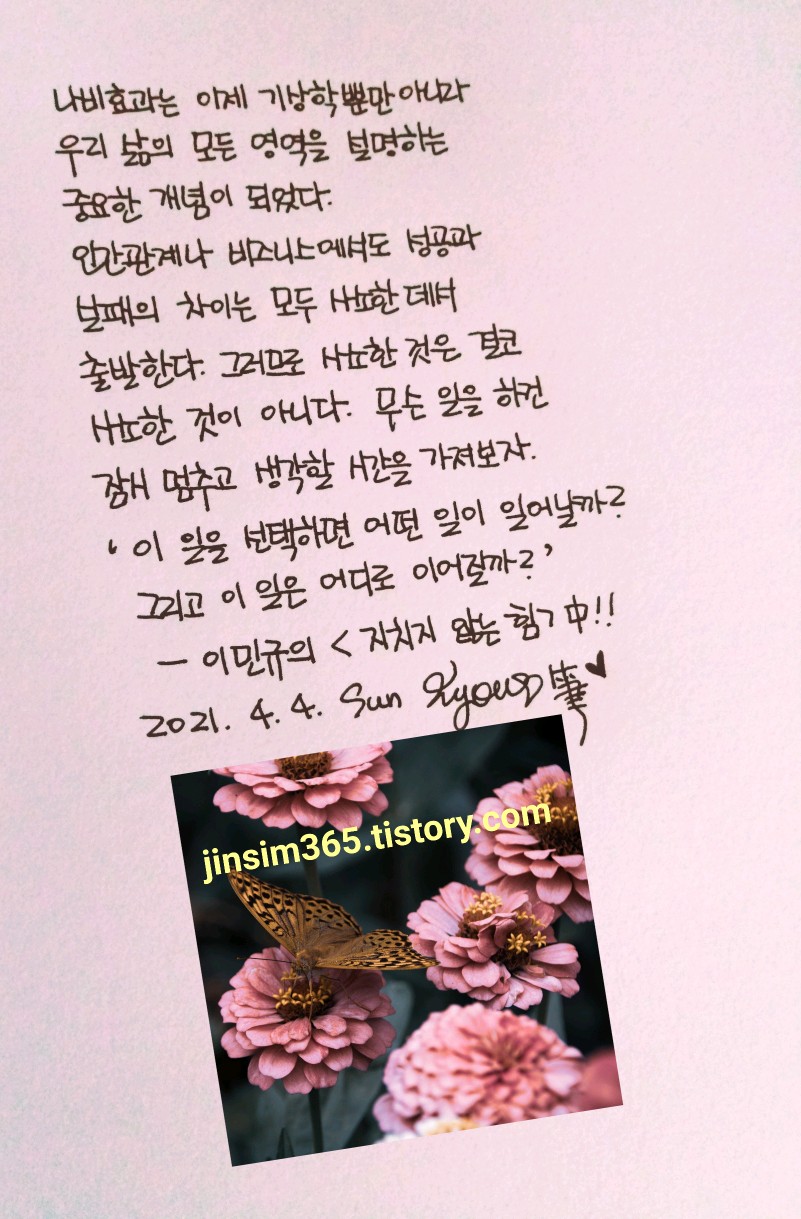 나비효과는 이제 기상학뿐만 아니라
우리 삶의 모든 영역을 설명하는
중요한 개념이 되었다.
인간관계나 비즈니스에서도 성공과
실패의 차이는 모두 사소한 데서
출발한다. 그러므로 사소한 것은 결코
사소한 것이 아니다. 무슨 일을 하건
잠시 멈추고 생각할 시간을 가져보자.
‘이 일을 선택하면 어떤 일이 일어날까?
그리고 이 일은 어디로 이어질까?’
- 이민규의 <지치지 않는 힘> 中!!
2021. 4. 4. Sun Kyoung 筆♥
jinsim365.tistory.com